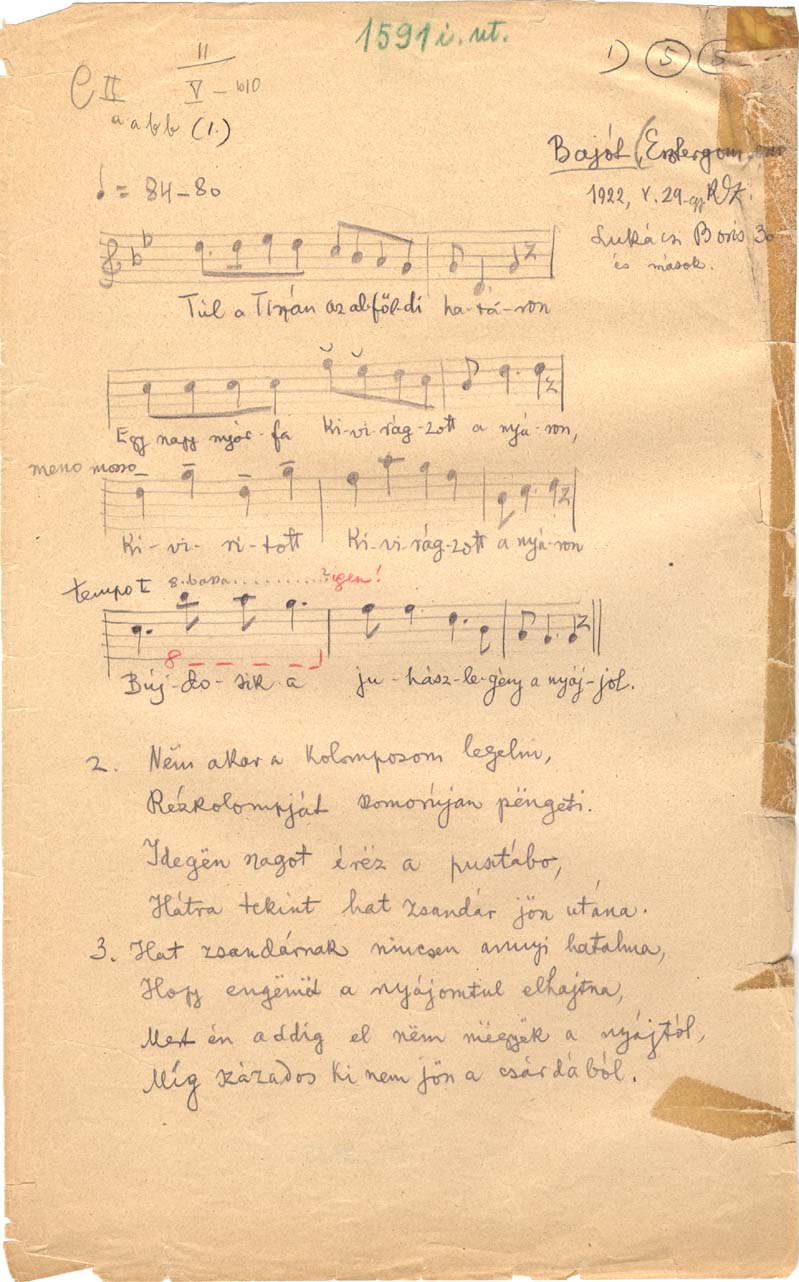 1591 i. ut.
1) 5 5
C II
II
V – b10
a a b b (1.)
Bajót (Esztergom
1922, V. 29-
= 84–80
Lukács Boris 30
és mások.
Túl a Tiszán az al-föl-di ha-tá-ron
Egy nagy nyár-fa Ki-vi-rág-zott a nyá-ron,
meno mosso
Ki-vi-rí-tott Ki-vi-rág-zott a nyá-ron
tempo I 8. bassa..........? igen!
8
Búj-do-sik a ju-hász-le-gény a nyáj-jol.
2. Nëm akar a kolomposom legelni,
Rézkolompját szomorújan pëngeti.
Idegën szagot érëz a pusztábo,
Hátra tekint hat zsandár jön utána.
3. Hat zsandárnak nincsen annyi hatalma,
Hogy engëmët a nyájomtul elhajtna,
Mert én addig el nëm mëgyëk a nyájtól,
Míg százados ki nem jön a csárdából.